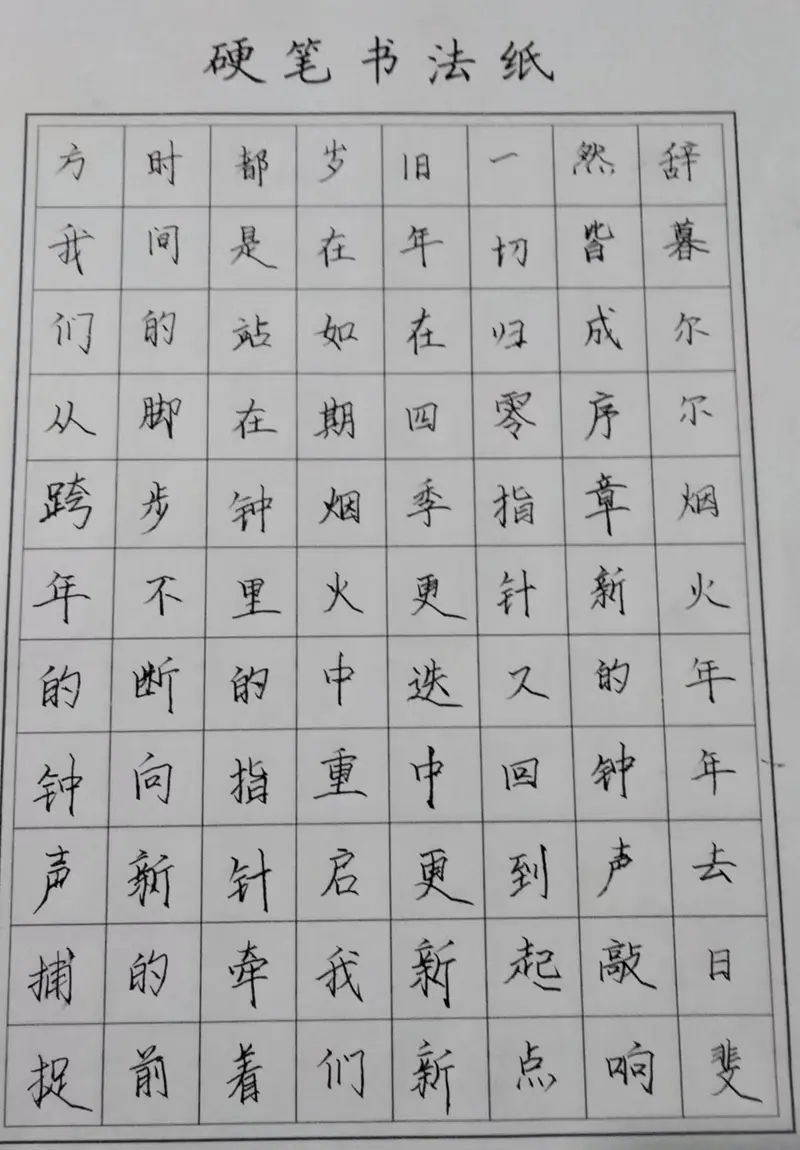 硬笔书法纸
辞暮尔尔烟火年年去日斐
然皆成序章新的钟声敲响
一切归零指针又回到起点
旧年在四季更迭中更新新
岁在如期烟火中重启我们
都是站在钟里的指针牵着
时间的脚步不断向新的前
方我们从跨年的钟声捕捉